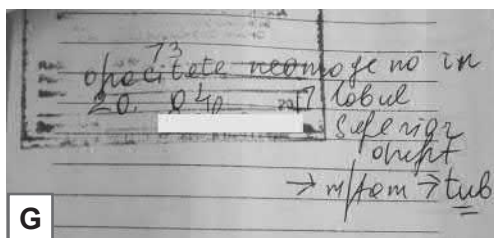 73
opacitate neomogenă în
20. 04 2017 lobul
superior
drept
→ m/fam → tub
G